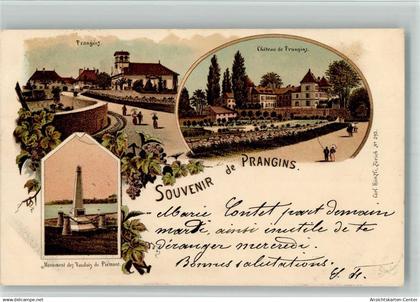 Prangins.
Château de Prangins.
SOUVENIR de PRANGINS.
Monument des Vaudois du Piémont
Marie Contet part demain
mardi, ainsi inutile de te
déranger mercredi.
Bonnes salutations.
Carl Künzli, Zürich No 293.
www.Ansichtskarten-Center.com
Ansichtskarten-Center